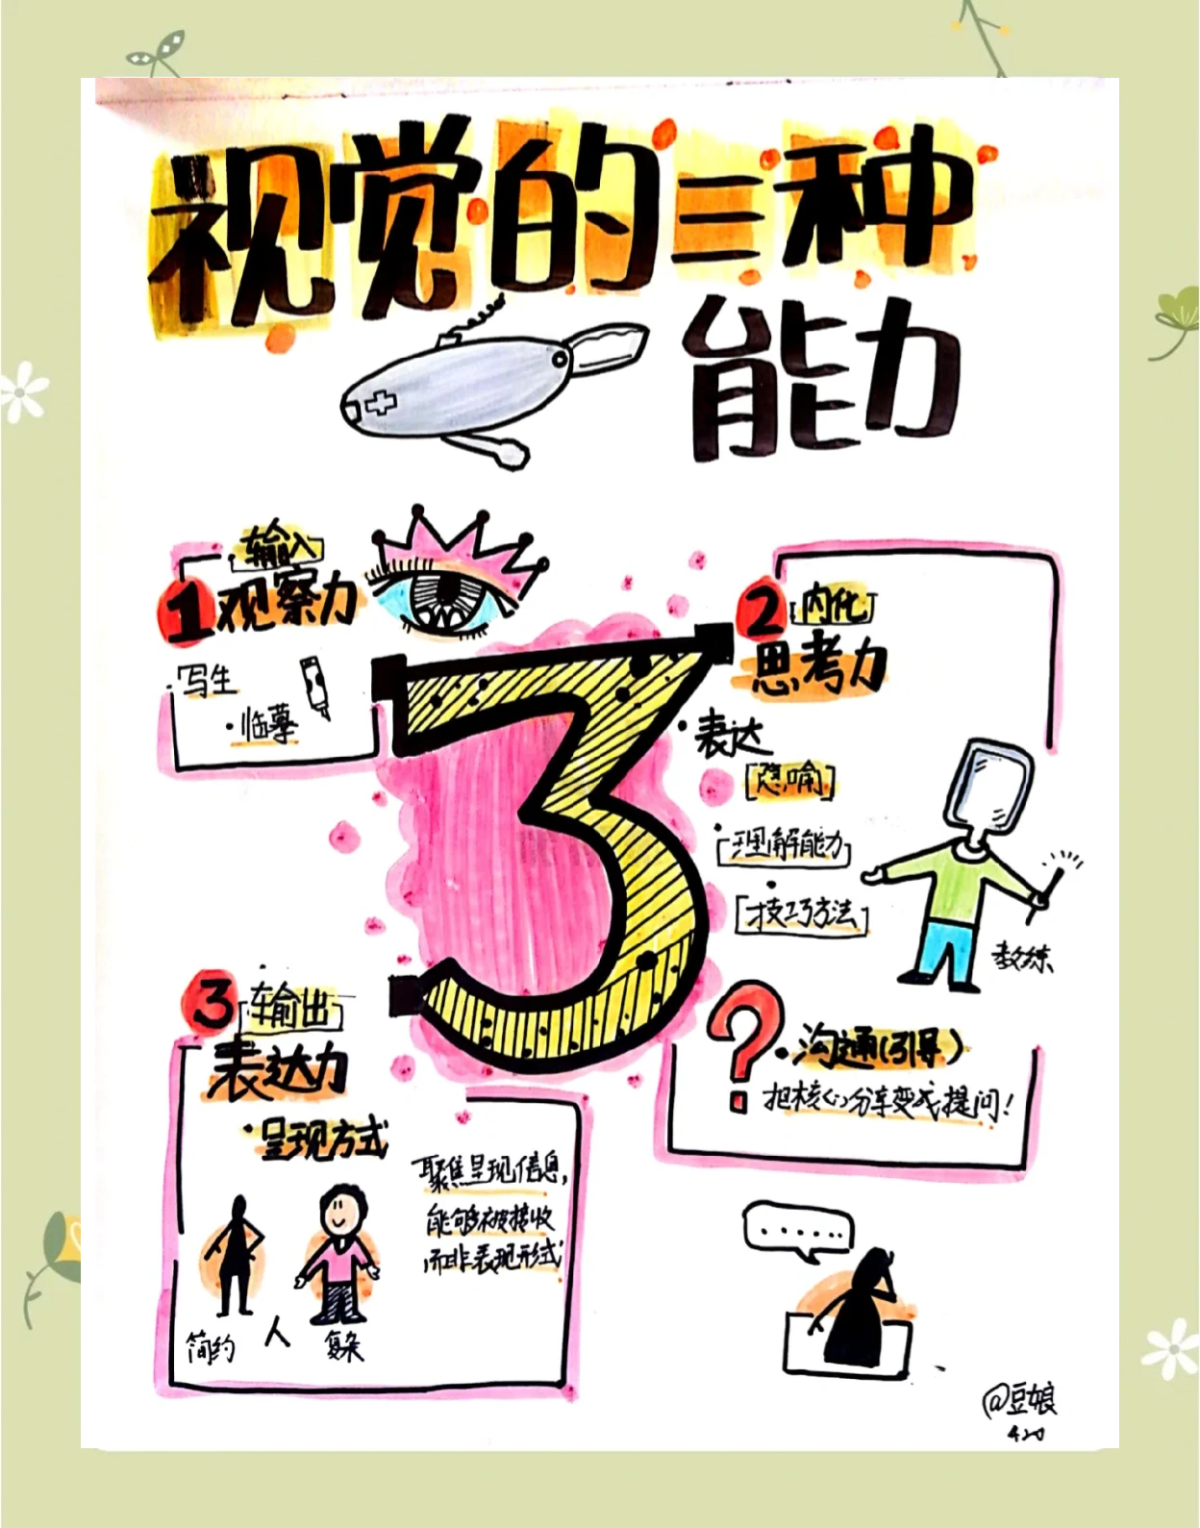 视觉的三种
能力
输入
1 观察力
·写生
·临摹
2 内化
思考力
·表达
隐喻
·理解能力
·技巧方法
教练
? ·沟通(引导)
把核心分享变成提问!
3 输出
表达力
·呈现方式
聚焦呈现信息,
能够被接收
而非表现形式
简约 人 复杂
3
......
@豆娘
420